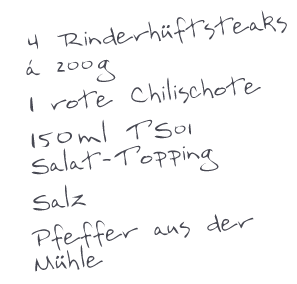 4 Rinderhüftsteaks
á 200g
1 rote Chilischote
150ml TSOI
Salat-Topping
Salz
Pfeffer aus der
Mühle